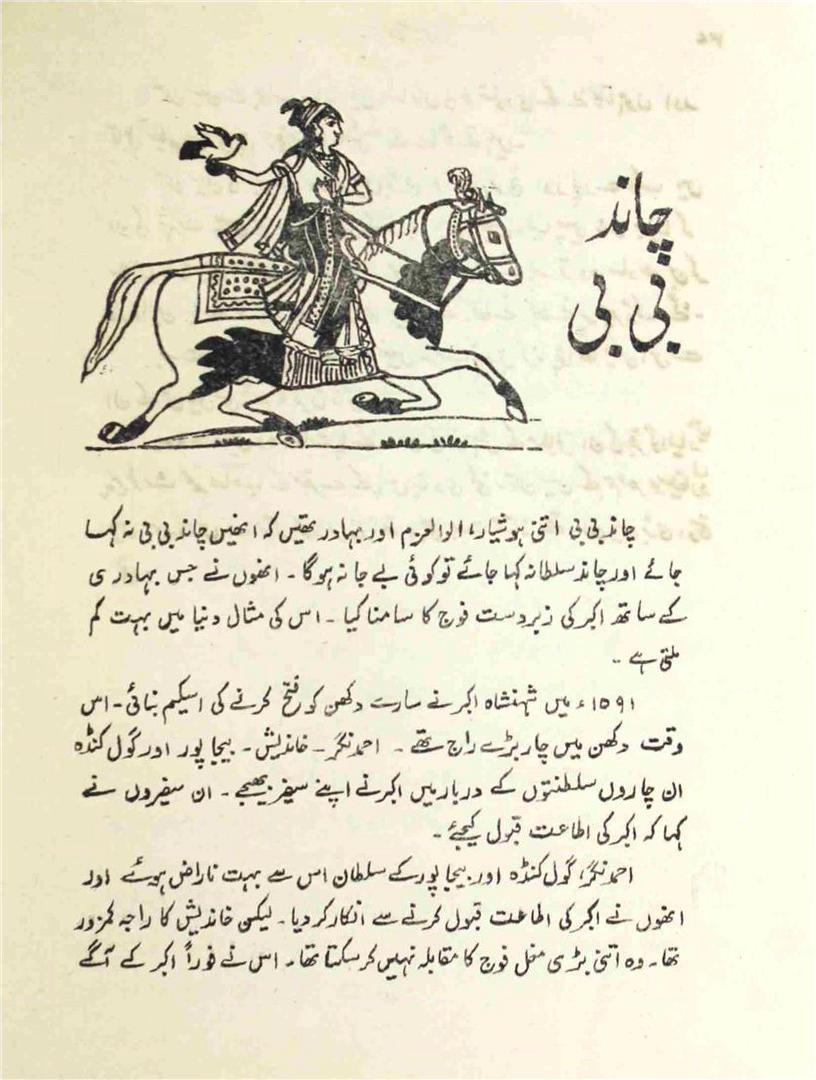 چاند
بی بی
چاند بی بی اتنی ہوشیار، الوالعزم اور بہادر تھیں کہ انھیں چاند بی بی نہ کہا
جائے اور چاند سلطانہ کہا جائے تو کوئی بے جا نہ ہوگا۔ انھوں نے جس بہادری
کے ساتھ اکبر کی زبردست فوج کا سامنا کیا۔ اس کی مثال دنیا میں بہت کم
ملتی ہے۔
۱۵۹۱ء میں شہنشاہ اکبر نے سارے دکھن کو فتح کرنے کی اسکیم بنائی۔ اس
وقت دکھن میں چار بڑے راج تھے۔ احمد نگر۔ خاندیش۔ بیجا پور اور گول کنڈہ
ان چاروں سلطنتوں کے دربار میں اکبر نے اپنے سفیر بھیجے۔ ان سفیروں نے
کہا کہ اکبر کی اطاعت قبول کیجئے۔
احمد نگر، گول کنڈہ اور بیجا پور کے سلطان اس سے بہت ناراض ہوئے اور
انھوں نے اکبر کی اطاعت قبول کرنے سے انکار کر دیا۔ لیکن خاندیش کا راجہ کمزور
تھا۔ وہ اتنی بڑی مغل فوج کا مقابلہ نہیں کر سکتا تھا۔ اس نے فوراً اکبر کے آگے